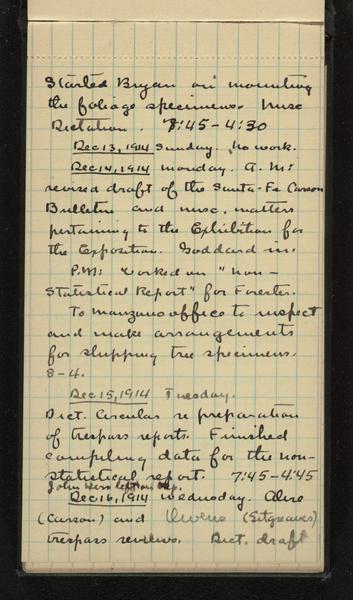 Started Bryan on mounting
the foliage specimens. Misc
Dictation. 7:45-4:30
Dec 13, 1914 Sunday. No work.
Dec 14, 1914 Monday. A.M:
revised draft of the Santa-Fe Carson
Bulletin and misc. matters
pertaining to the Exhibition for
the Exposition. Goddard in.
P.M: Worked on "Non-
Statistical Report" for Forester.
To Manzano office to inspect
and make arrangements
for shipping tree specimens.
8-4.
Dec 15, 1914 Tuesday.
Dict. Circular re preparation
of trespass reports. Finished
compiling data for the non-
statistical report. 7:45-4:45
John Kerr left on trip.
Dec 16, 1914 Wednesday.
(Carson) and Owens (Sitgreaves)
trespass reviews. Dict. draft